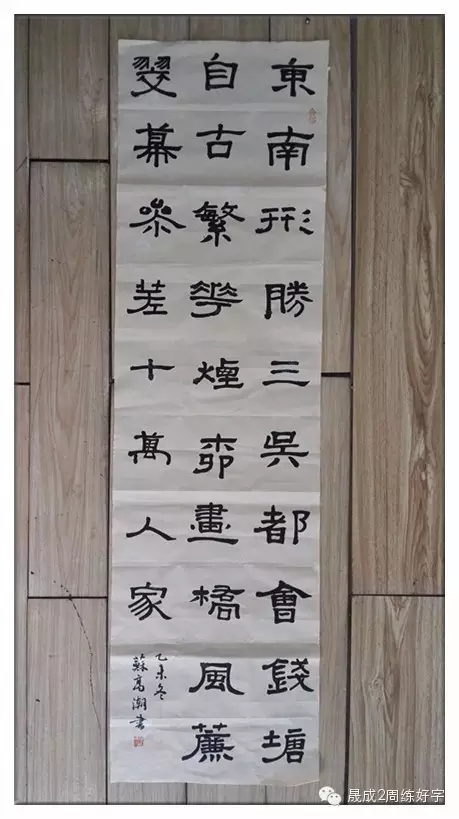 東南形勝三吳都會錢塘
自古繁華煙柳畫橋風簾
翠幕參差十萬人家
乙未冬
蘇高潮书
晟成2周练好字